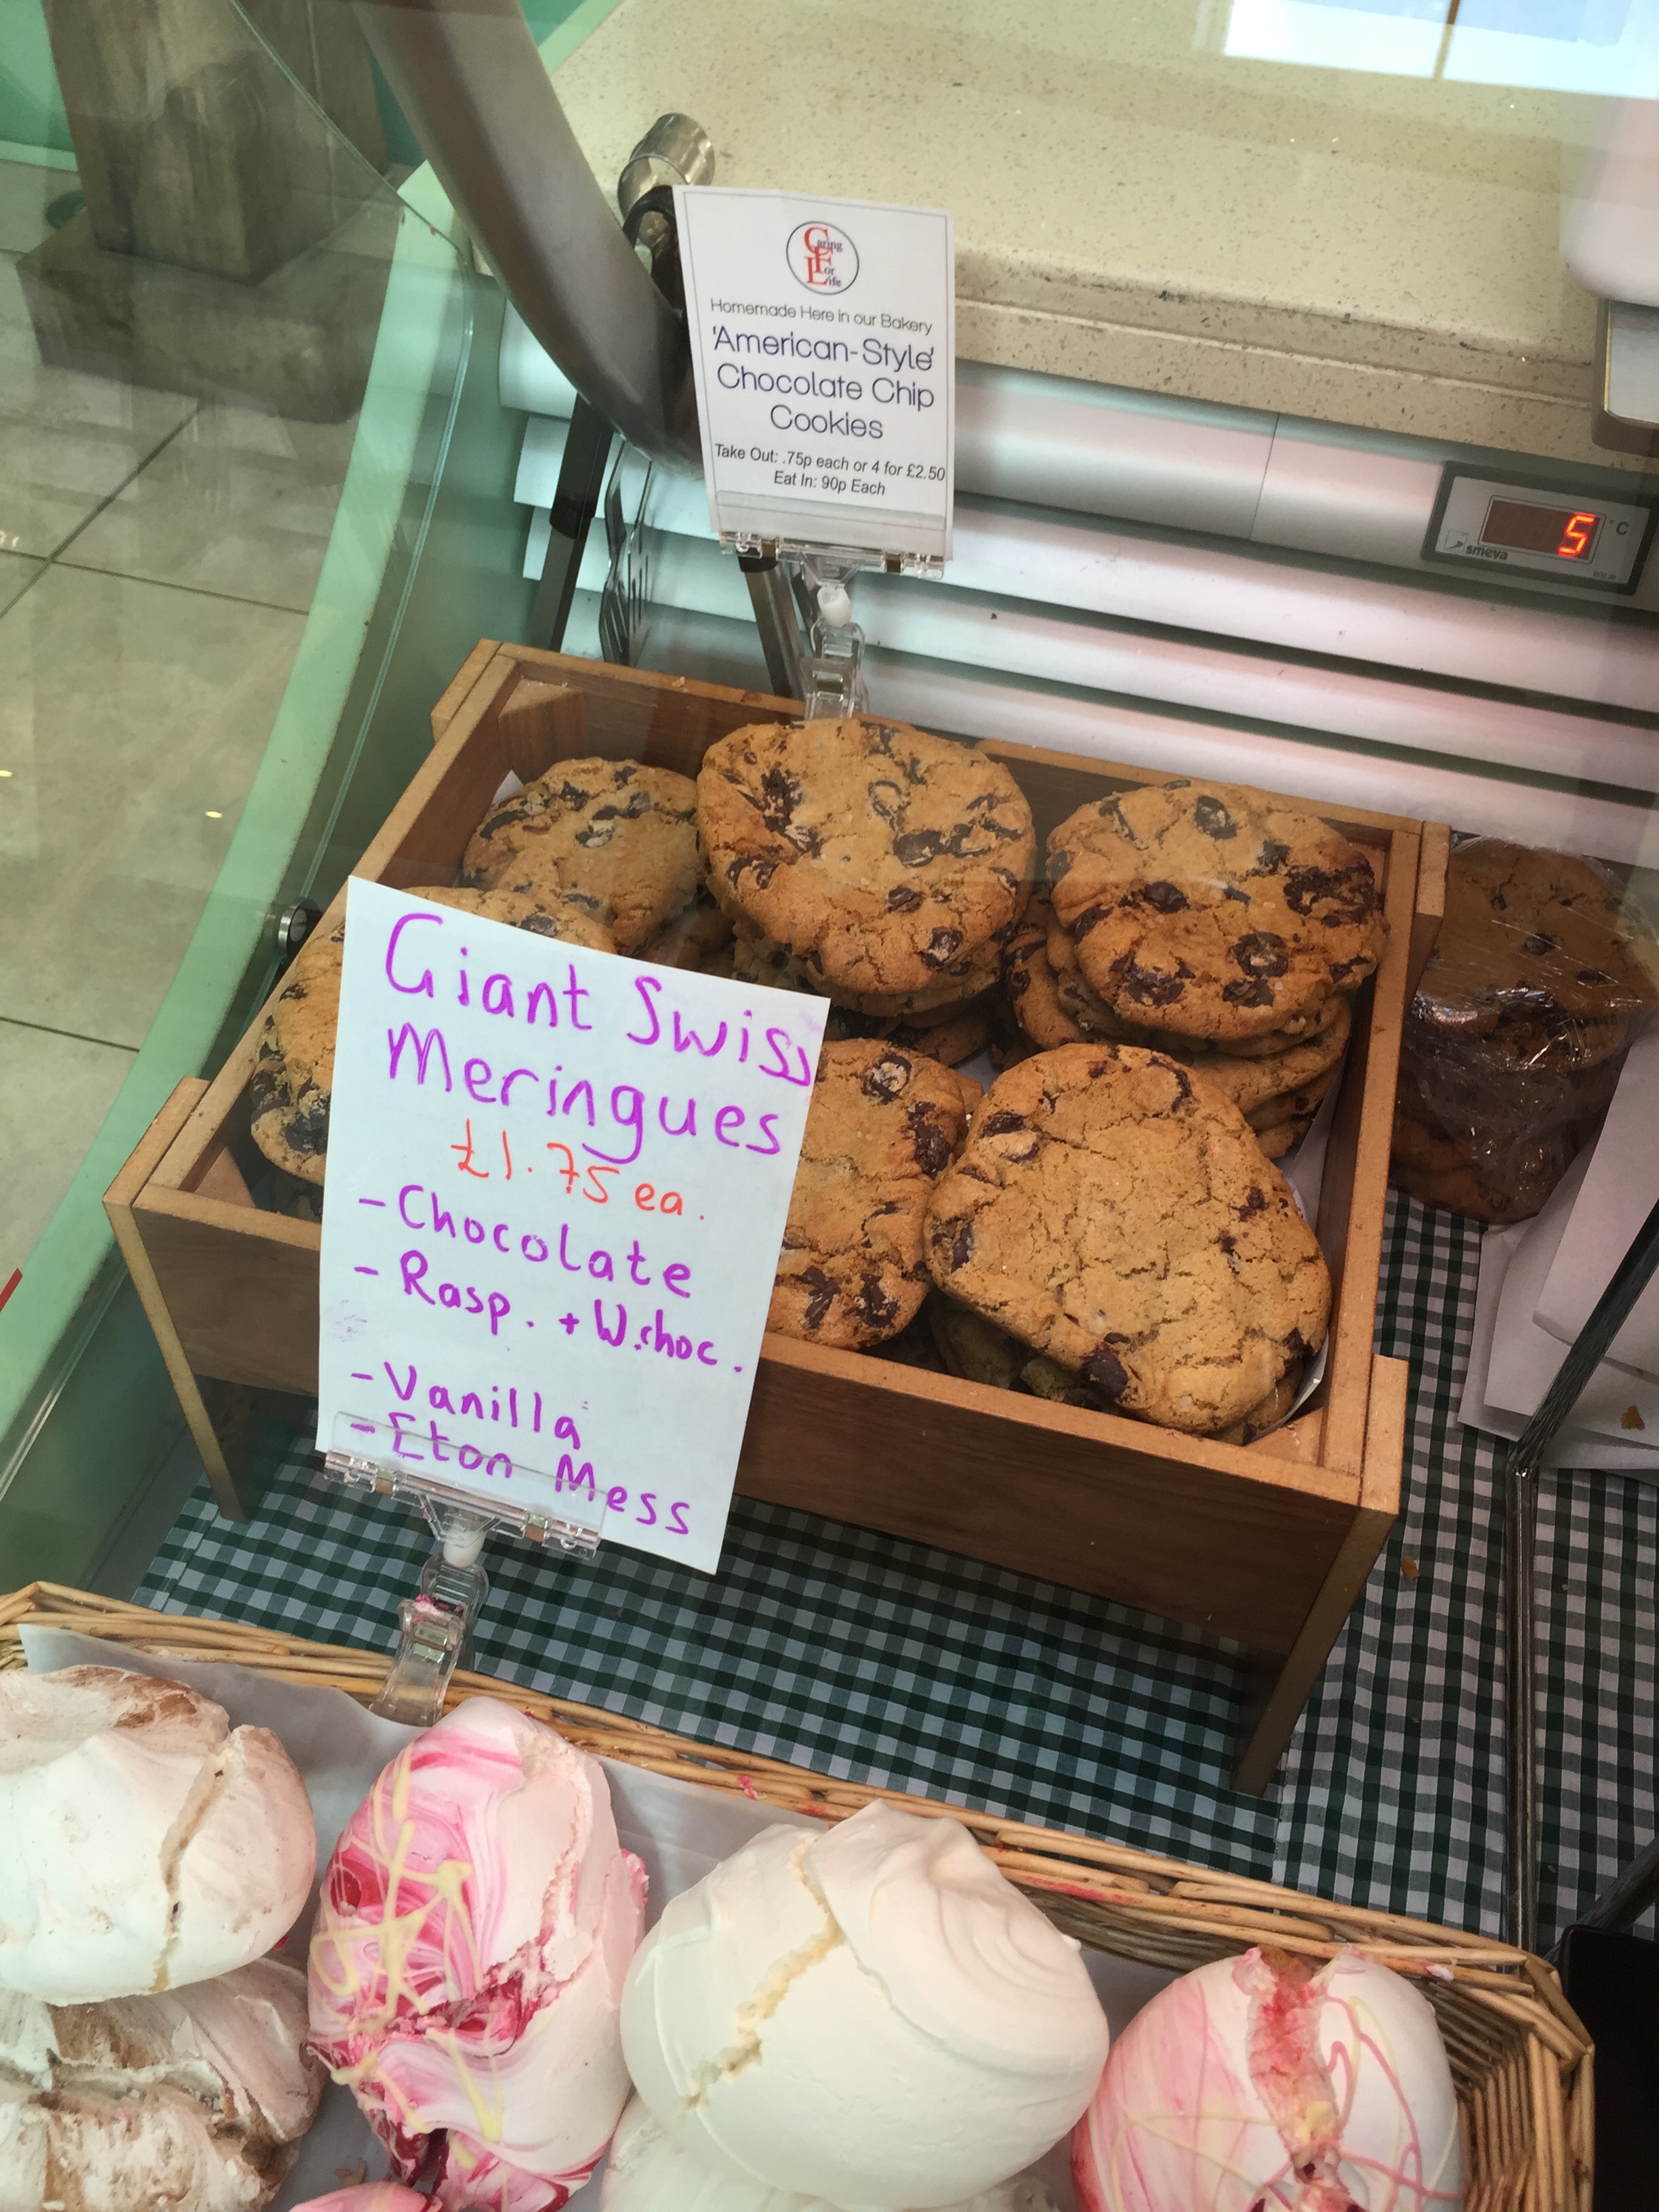 Caring
For
Life
Homemade Here in our Bakery
'American-Style'
Chocolate Chip
Cookies
Take Out: .75p each or 4 for £2.50
Eat In: 90p Each
5 °C
smeva
Giant Swiss
Meringues
£1.75 ea.
- Chocolate
- Rasp. + W.choc.
- Vanilla
- Eton Mess